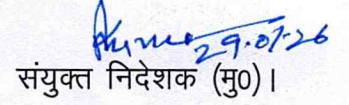 29.07.26
संयुक्त निदेशक (मु0)।